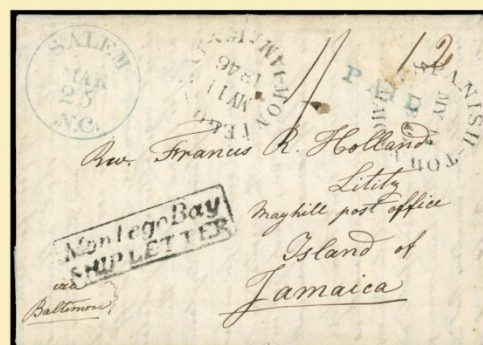 SALEM
MAR
25
N.C.
MONTEGO
MY 11
1846
12
PAID
SPANISH-TOWN
MY
Rev. Francis R. Holland
Lititz
Mayhill post office
Island of
Jamaica
Montego Bay
SHIP LETTER
via
Baltimore